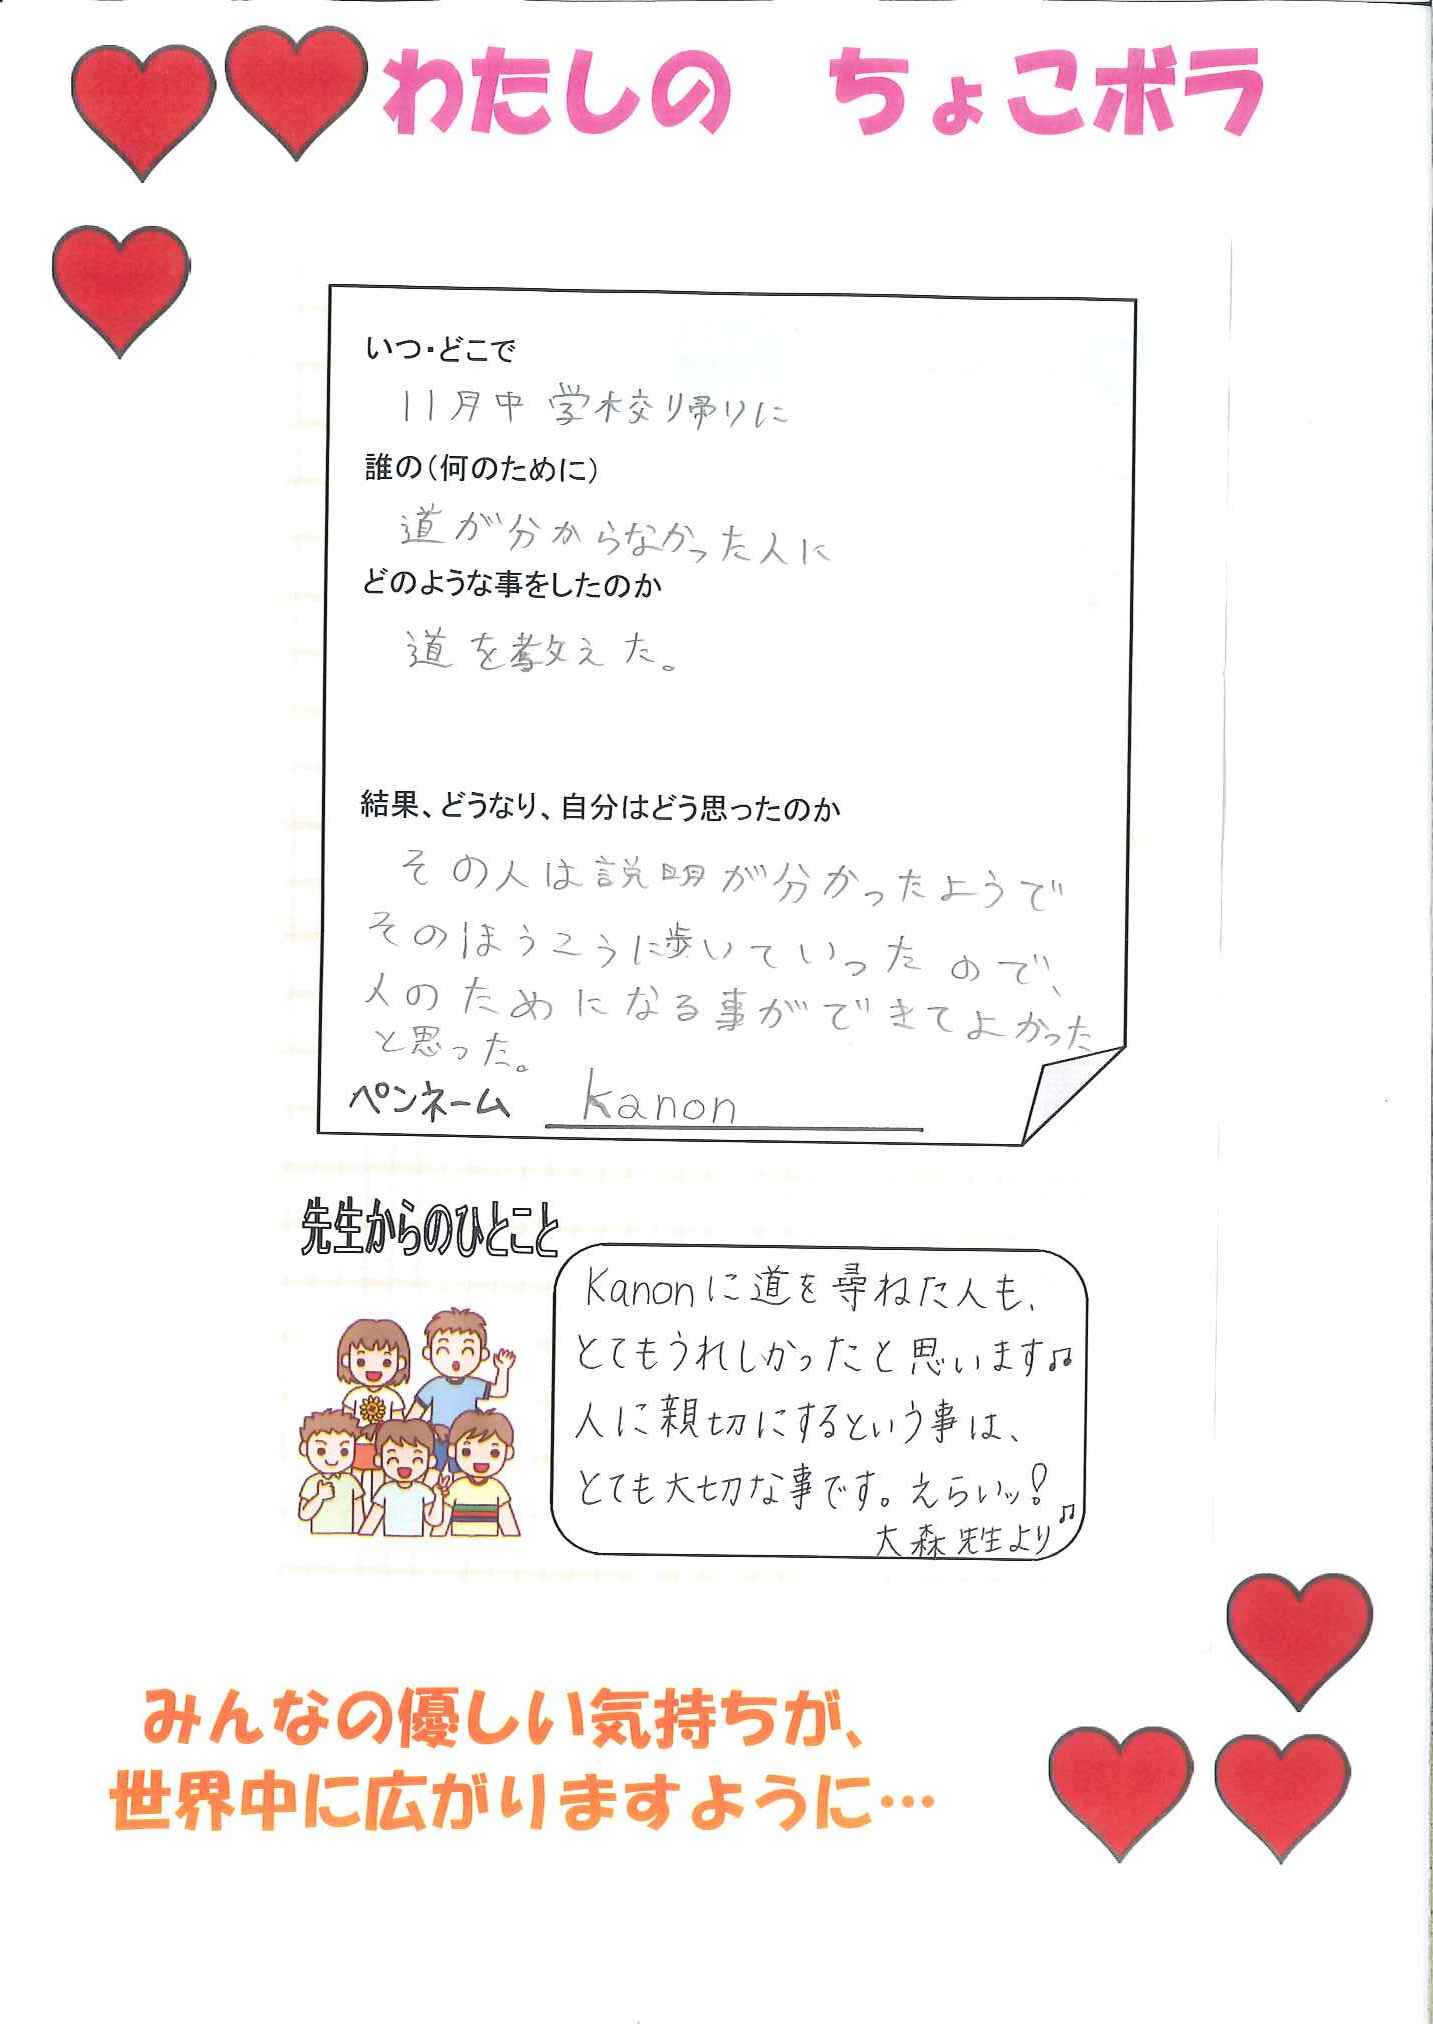 わたしの ちょこボラ
いつ・どこで
11月中 学校り帰りに
誰の(何のために)
道が分からなかった人に
どのような事をしたのか
道を教えた。
結果、どうなり、自分はどう思ったのか
その人は説明が分かったようで
そのほうこうに歩いていったので、
人のためになる事ができてよかった
と思った。
ペンネーム kanon
先生からのひとこと
Kanonに道を尋ねた人も、
とてもうれしかったと思います♫
人に親切にするという事は、
とても大切な事です。えらいッ!♫
大森先生より
みんなの優しい気持ちが、
世界中に広がりますように…